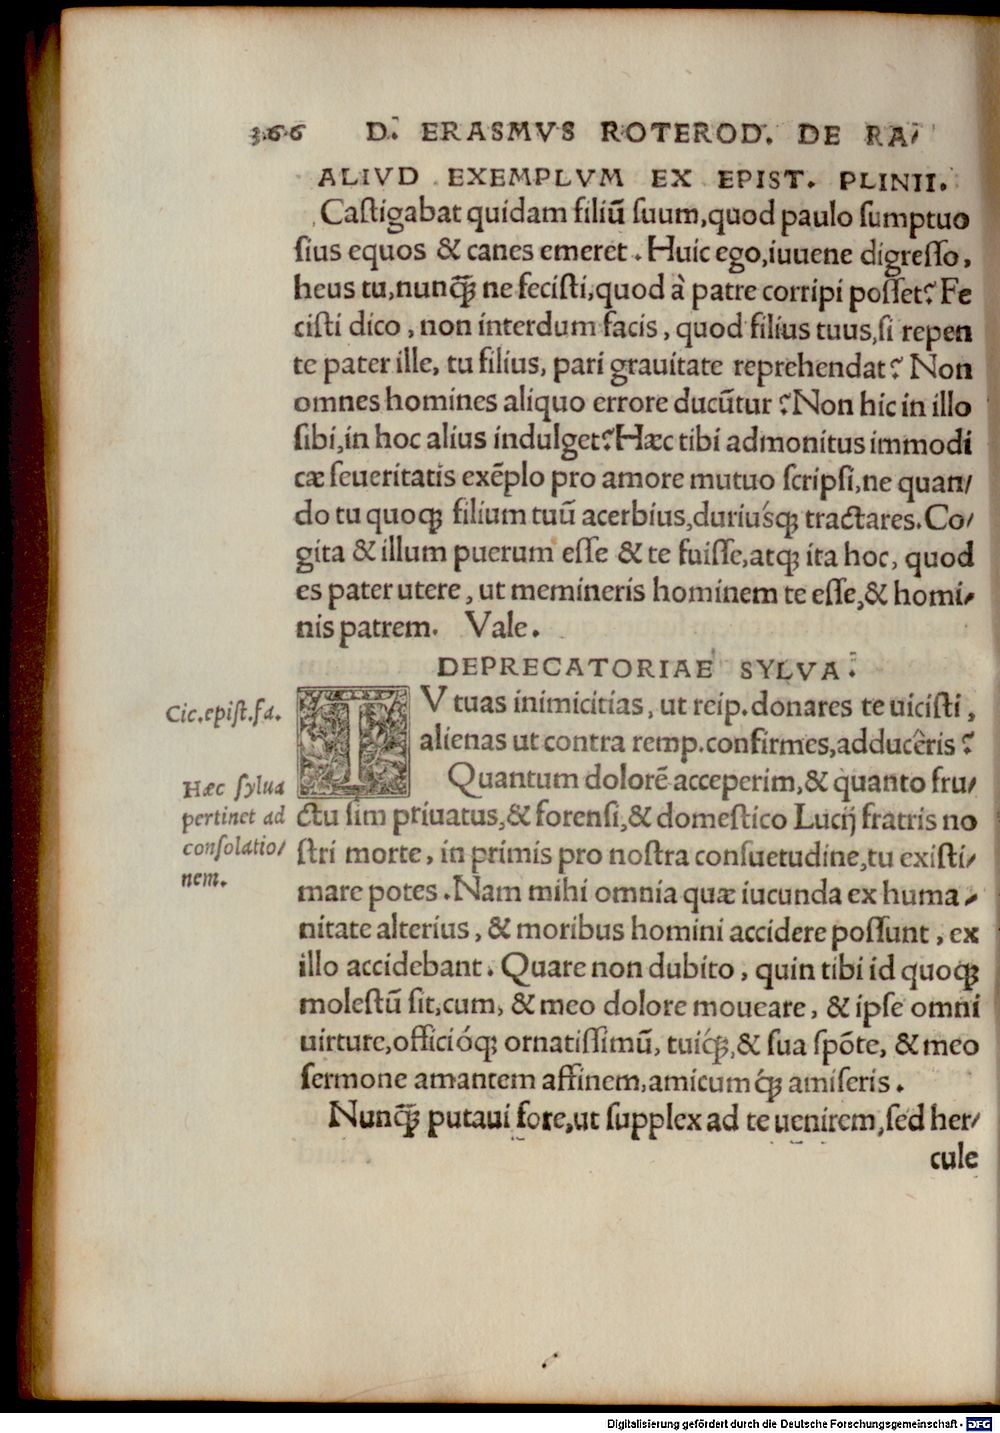 366 D. ERASMVS ROTEROD. DE RA⸗
ALIVD EXEMPLVM EX EPIST. PLINII.
Caſtigabat quidam filiũ ſuum,quod paulo ſumptuo
ſius equos & canes emeret. Huic ego,iuuene digreſſo,
heus tu,nunq̃ ne feciſti,quod à patre corripi poſſet? Fe
ciſti dico, non interdum facis, quod filius tuus,ſi repen
te pater ille, tu filius, pari grauitate reprehendat? Non
omnes homines aliquo errore ducũtur? Non hic in illo
ſibi,in hoc alius indulget? Hæc tibi admonitus immodi
cæ ſeueritatis exẽplo pro amore mutuo ſcripſi,ne quan⸗
do tu quoq; filium tuũ acerbius,duriuśq; tractares. Co⸗
gita & illum puerum eſſe & te fuiſſe,atq; ita hoc, quod
es pater utere, ut memineris hominem te eſſe,& homi⸗
nis patrem. Vale.
DEPRECATORIAE SYLVA.
Cic.epiſt.fa.
TV tuas inimicitias, ut reip. donares te uiciſti,
alienas ut contra remp. confirmes,adducêris?
Quantum dolorẽ acceperim,& quanto fru⸗
Hæc ſylua
pertinet ad
conſolatio⸗
nem.
ctu ſim priuatus,& forenſi,& domeſtico Lucij fratris no
ſtri morte, in primis pro noſtra conſuetudine,tu exiſti⸗
mare potes. Nam mihi omnia quæ iucunda ex huma⸗
nitate alterius, & moribus homini accidere poſſunt, ex
illo accidebant. Quare non dubito, quin tibi id quoq;
moleſtũ ſit,cum, & meo dolore moueare, & ipſe omni
uirture,officióq; ornatiſſimũ, tuiq́;,& ſua ſpõte, & meo
ſermone amantem affinem,amicumq́; amiſeris.
Nunq̃ putaui fore,ut ſupplex ad te uenirem,ſed her⸗
cule
Digitalisierung gefördert durch die Deutsche Forschungsgemeinschaft - DFG